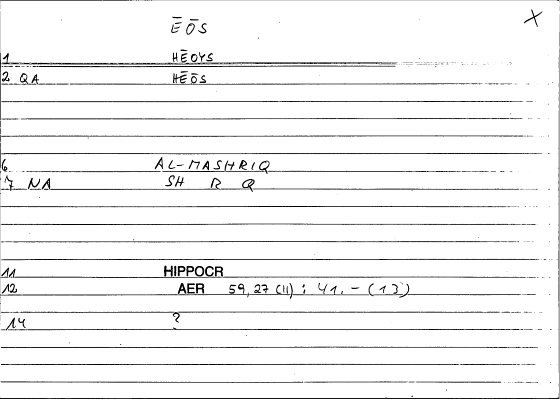 ĒŌS X
1 HĒOYS
2 QA HĒŌS
6 AL-MASHRIQ
7 NA SH R Q
11 HIPPOCR
12 AER 59,27 (11) : 41.- (13)
14 ?